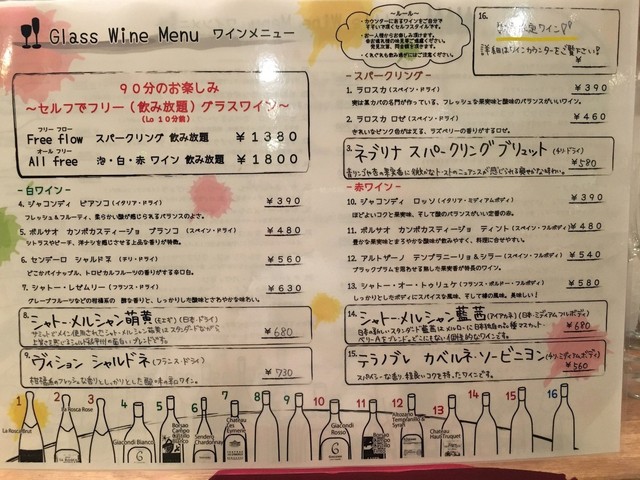 Glass Wine Menu ワインメニュー
90分のお楽しみ
〜セルフでフリー（飲み放題）グラスワイン〜
（Lo 10分前）
フリー フロー
Free flow スパークリング 飲み放題 ￥1380
オール フリー
All free 泡・白・赤 ワイン 飲み放題 ￥1800
〜ルール〜
・カウンターにあるワインをご自分で
16.
ワイン♡♡
詳細はワインカウンターをご覧下さい!
－スパークリング－
1. ラロスカ（スペイン・ドライ） ￥390
実は某カバの名門が作っている、フレッシュな果実味と酸味のバランスがいいワイン。
2. ラロスカ ロゼ（スペイン・ドライ） ￥460
きれいなピンク色がはえる、ラズベリーの香りがするロゼ。
3. ネブリナ スパークリングブリュット（チリ・ドライ） ￥580
－白ワイン－
4. ジャコンディ ビアンコ（イタリア・ドライ） ￥390
フレッシュ＆フルーティ、柔らかい酸が感じられるバランスのよさ。
5. ボルサオ カンポカスティージョ ブランコ（スペイン・ドライ） ￥480
シトラスやピーチ、洋ナシを感じさせる上品な香りが特徴。
6. センデーロ シャルドネ（チリ・ドライ） ￥560
どこかパイナップル、トロピカルフルーツの香りがする辛口白。
7. シャトー・レゼムリー（フランス・ドライ） ￥630
グレープフルーツなどの柑橘系の 酸を香りと、しっかりした酸味とさわやかな味わい。
8. シャトー・メルシャン萌黄（モエギ）（日本・ドライ）
￥680
9. ヴィジョン シャルドネ（フランス・ドライ）
￥730
－赤ワイン－
10. ジャコンディ ロッソ（イタリア・ミディアムボディ） ￥390
ほどよいコクと果実味、そして酸のバランスがいい定番の赤。
11. ボルサオ カンポカスティージョ ティント（スペイン・フルボディ） ￥480
豊かな果実味とまろやかな酸味が飲みやすく、料理に合せやすい。
12. アルトザーノ テンプラニーリョ＆シラー（スペイン・フルボディ） ￥540
ブラックプラムを思わせる熟した果実香が特長のワイン。
13. シャトー・オー・トゥリュケ（フランス・ボルドー・フルボディ） ￥580
しっかりとしたボディにスパイスな風味、そして樽の風味。美味しい!
14. シャトー・メルシャン藍茜（アイアカネ）（日本・ミディアムフルボディ）
￥680
15. テラノブレ カベルネ・ソービニヨン（チリ・ミディアムボディ）
スパイシーな香り、程良いコクを持ったワインです。 ￥560
1 2 3 4 5 6 7 8 9 10 11 12 13 14 15 16
La Rosca Brut
La Rosca Rose
Giacondi Bianco
Borsao Campo Castillo Blanco
Sendero Chardonnay
Chateau Les Emmeries
Giacondi Rosso
Borsao Campo Castillo Tinto
Altozano Tempranillo & Syrah
Chateau Haut Truquet